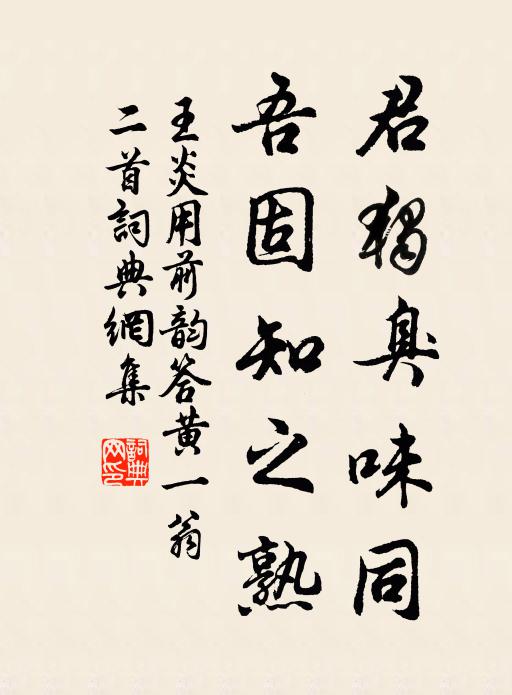 君獨臭味同
吾固知之熟
王炎用前韵答黄一翁
二首詞典網集
詞典網印